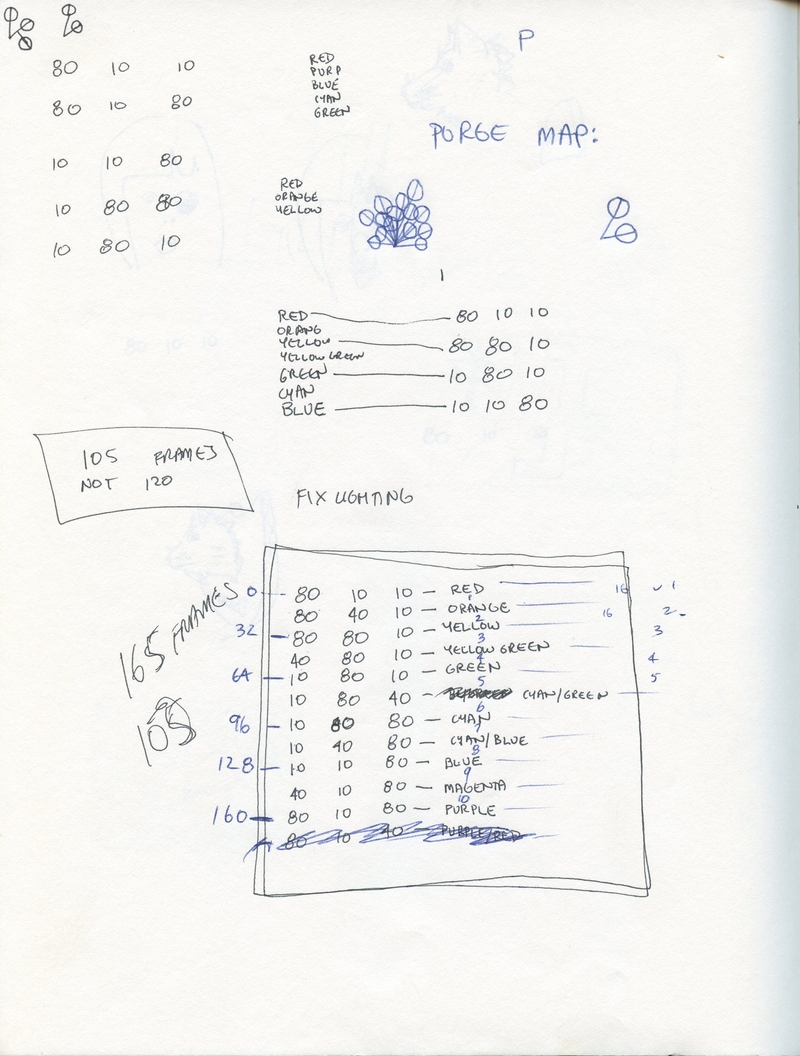 80 10 10
80 10 80
10 10 80
10 80 80
10 80 10
RED
PURP
BLUE
CYAN
GREEN
P
PURGE MAP:
RED
ORANGE
YELLOW
1
RED 80 10 10
ORANG
YELLOW 80 80 10
YELLOW GREEN
GREEN 10 80 10
CYAN
BLUE 10 10 80
105 FRAMES
NOT 120
FIX LIGHTING
165 FRAMES
105
0 80 10 10 — RED 16 ✓ 1
1
80 40 10 — ORANGE 16 2
2
32 80 80 10 — YELLOW 3
3
40 80 10 — YELLOW GREEN 4
4
64 10 80 10 — GREEN 5
5
10 80 40 — CYAN/GREEN
6
96 10 80 80 — CYAN
7
10 40 80 — CYAN/BLUE
8
128 10 10 80 — BLUE
9
40 10 80 — MAGENTA
10
160 80 10 80 — PURPLE
80 10 40 — PURPLE/RED